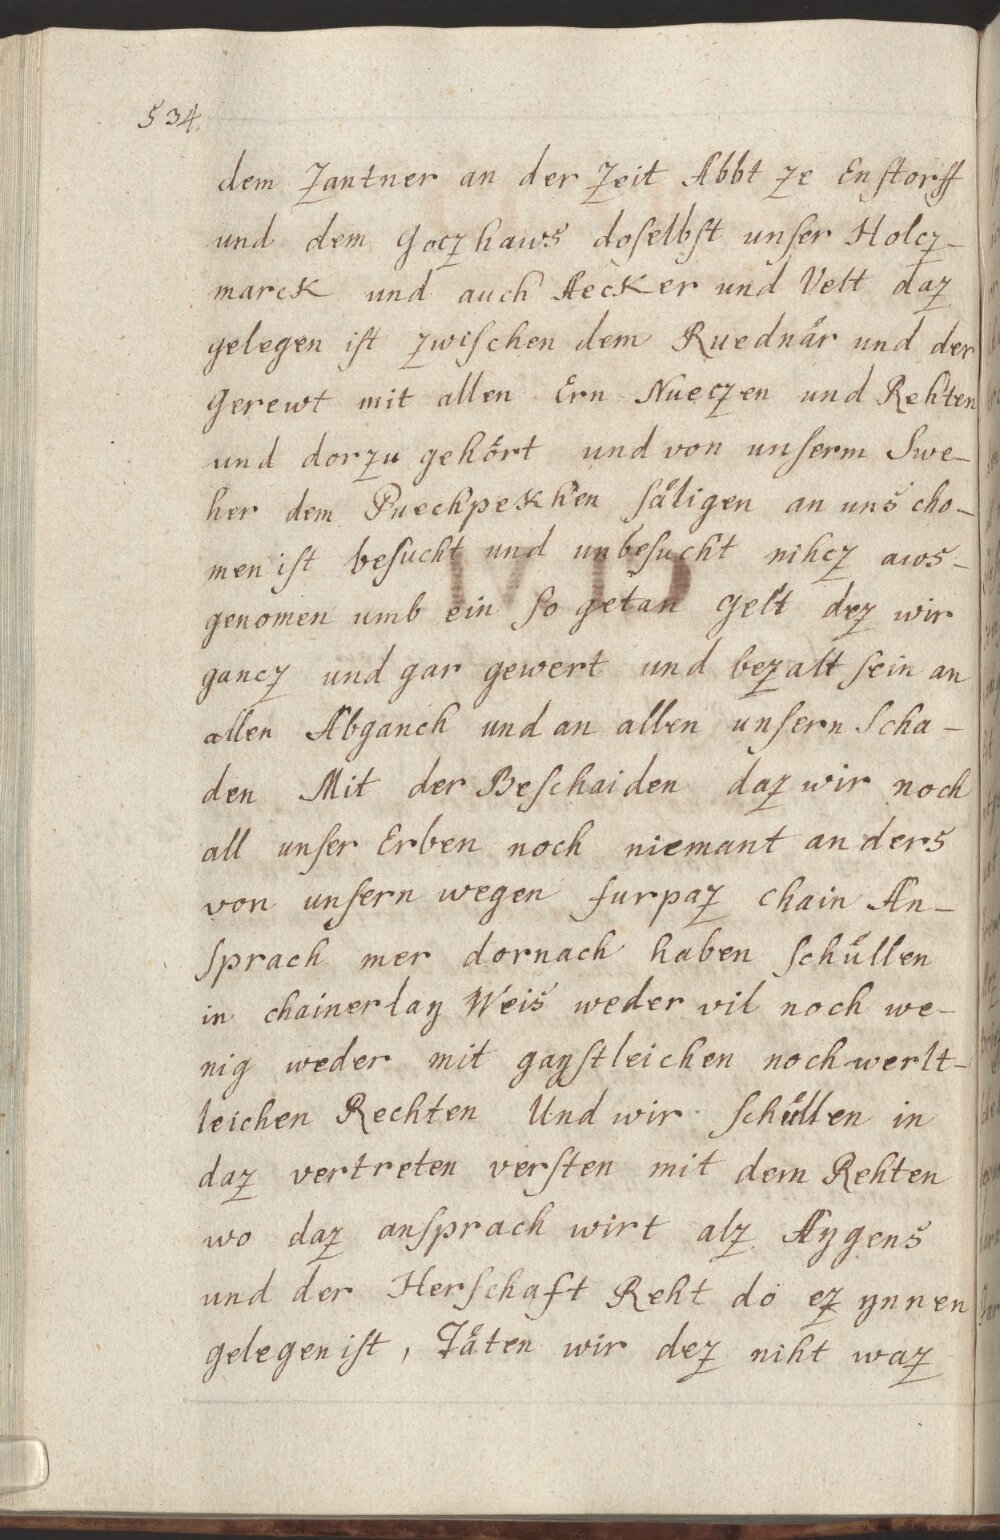 534.
dem Zantner an der Zeit Abbt ze Enſtorff
und dem Goczhaws doſelbſt unſer Holcz-
marck und auch Aecker und Velt daz
gelegen iſt zwiſchen dem Ruednår und der
Gerewt mit allen Ern Nueczen und Rehten
und dorzu gehört und von unſerm Swe-
her dem Puechpekhen ſåligen an uns cho-
men iſt beſucht und unbeſucht nihcz aws-
genomen umb ein ſo getan Gelt dez wir
gancz und gar gewert und bezalt ſein an
allen Abganch und an allen unſern Scha-
den Mit der Beſchaiden daz wir noch
all unſer Erben noch niemant anders
von unſern wegen furpaz chain An-
ſprach mer dornach haben ſchůllen
in chainerlay Weis weder vil noch we-
nig weder mit gayſtleichen noch werlt-
leichen Rechten Und wir ſchůllen in
daz vertreten verſten mit dem Rehten
wo daz anſprach wirt alz Aygens
und der Herſchaft Reht do ez ynnen
gelegen iſt, Tåten wir dez niht waz